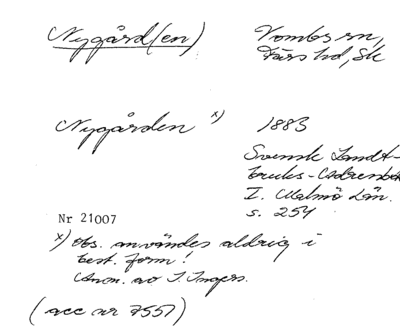 Nygård(en)
Vombs sn,
Färs hd, Sk
Nygården x)
1883
Svensk Landt-
bruks-Adressb
I. Malmö Län.
s. 254
Nr 21007
x) Obs. användes aldrig i
best. form!
Anm. av I. Ingers.
(acc nr 7557)